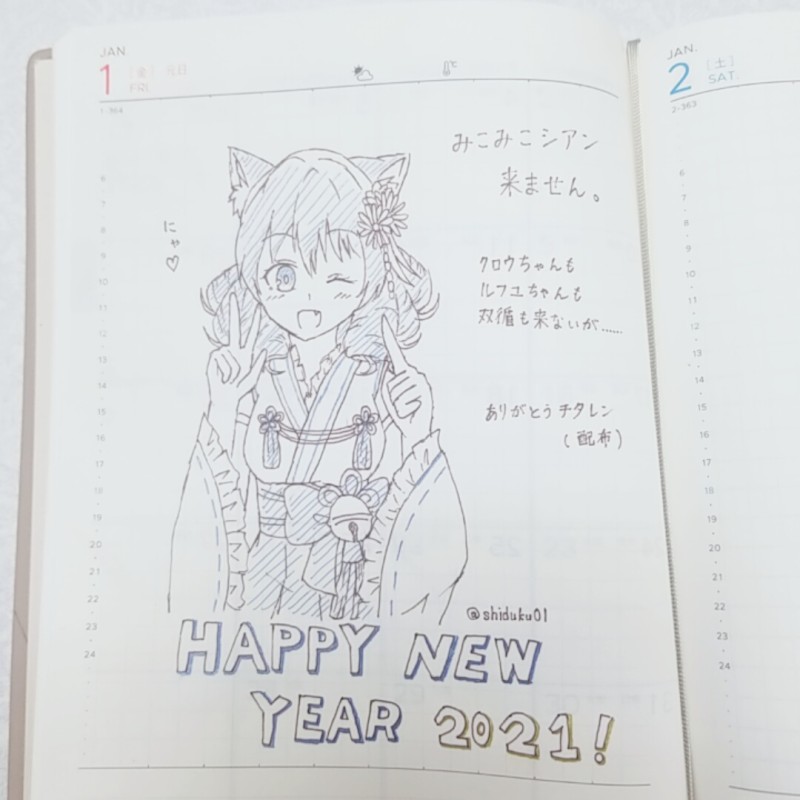 JAN
1
(金) 元日
FRI
1-364
℃
みこみこシアン
来ません。
にゃ♡
クロウちゃんも
ルフユちゃんも
双循も来ないが……
ありがとうチタレン
(配布)
@shiduku01
HAPPY NEW
YEAR 2021!
6
7
8
9
10
11
12
13
14
15
16
17
18
19
20
21
22
23
24
JAN.
2
(土)
SAT.
2-363
6
7
8
9
10
11
12
13
14
15
16
17
18
19
20
21
22
23
24